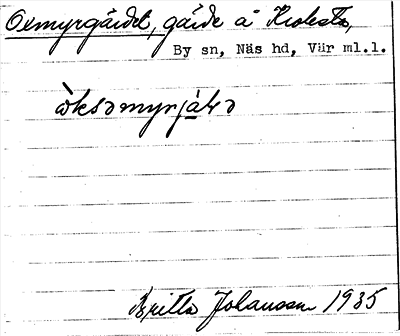 Oxmyrgärdet, gärde å Kroksta,
By sn, Näs hd, Vär ml.l.
òksəmyrjàḷə
Britta Johansson 1935